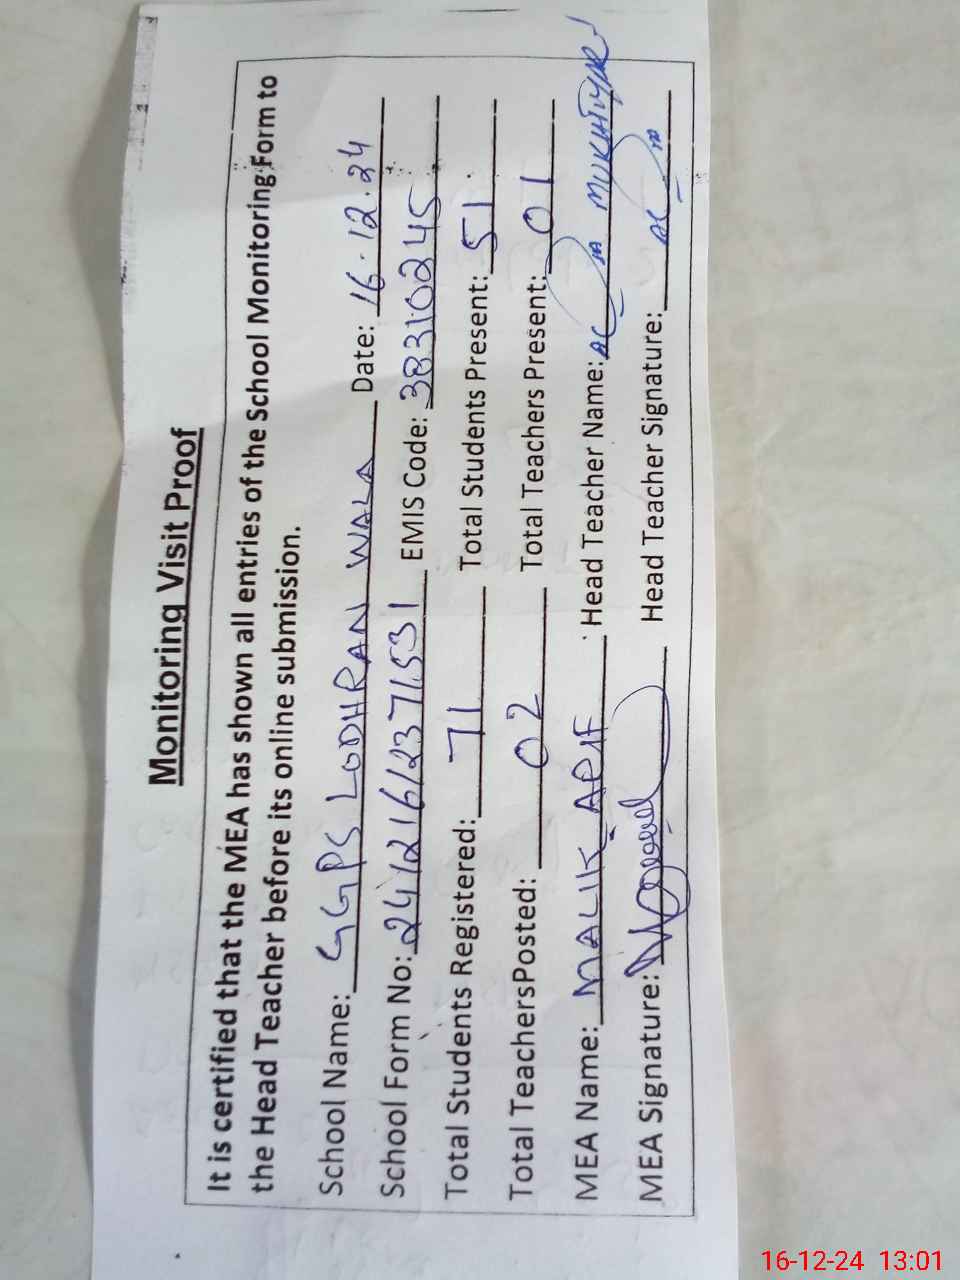 Monitoring Visit Proof
It is certified that the MEA has shown all entries of the School Monitoring Form to
the Head Teacher before its online submission.
School Name: GGPS LODHRAN WALA Date: 16.12.24
School Form No: 241216123771531 EMIS Code: 38310245
Total Students Registered: 71 Total Students Present: 51
Total TeachersPosted: 02 Total Teachers Present: 01
MEA Name: MALIK ARIF Head Teacher Name: MUKHTYAR
MEA Signature: Head Teacher Signature:
16-12-24 13:01